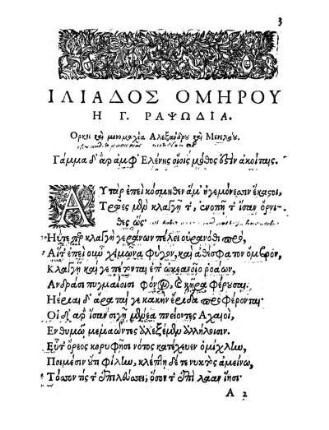 3
ΙΛΙΑΔΟΣ ΟΜΗΡΟΥ
Η Γ. ΡΑΨΩΔΙΑ.
Ορκοι καὶ μονομαχία Αλεξάνδρου καὶ Μενελάου.
Γάμμα δ' ἄρ ἀμφ' Ελένης οἴοις μόθος ὅστιν ἀκοίταις.
Αὐτὰρ ἐπεὶ κόσμηθεν ἅμ' ἡγεμόνεσσιν ἕκαστοι,
Τρῶες μὲν κλαγγῇ τ', ἐνοπῇ τ' ἴσαν ὄρνιθες ὥς
Ηΰτε περ κλαγγὴ γεράνων πέλει οὐρανόθι πρό,
Αἵτ' ἐπεὶ οὖν χειμῶνα φύγον, καὶ ἀθέσφατον ὄμβρον,
Κλαγγῇ ταί γε πέτονται ἐπ' ὠκεανοῖο ῥοάων,
Ανδράσι πυγμαίοισι φόνον καὶ κῆρα φέρουσαι.
Ηέριαι δ' ἄρα ταί γε κακὴν ἔριδα προφέρονται.
Οἱ δ' ἄρ ἴσαν σιγῇ μένεα πνείοντες Αχαιοί,
Εν θυμῷ μεμαῶτες ἀλεξέμεν ἀλλήλοισιν.
Εὖτ' ὄρεος κορυφῇσι νότος κατέχευεν ὀμίχλην,
Ποιμέσιν οὔτι φίλην, κλέπτῃ δέ τε νυκτὸς ἀμείνω,
Τόσσον τίς τ' ἐπιλεύσσει, ὅσον τ' ἐπὶ λᾶαν ἵησι·
A 2